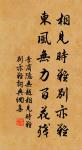 相見時難別亦難
東風無力百花殘
李商隱無題相見時難
別亦難詞典網集